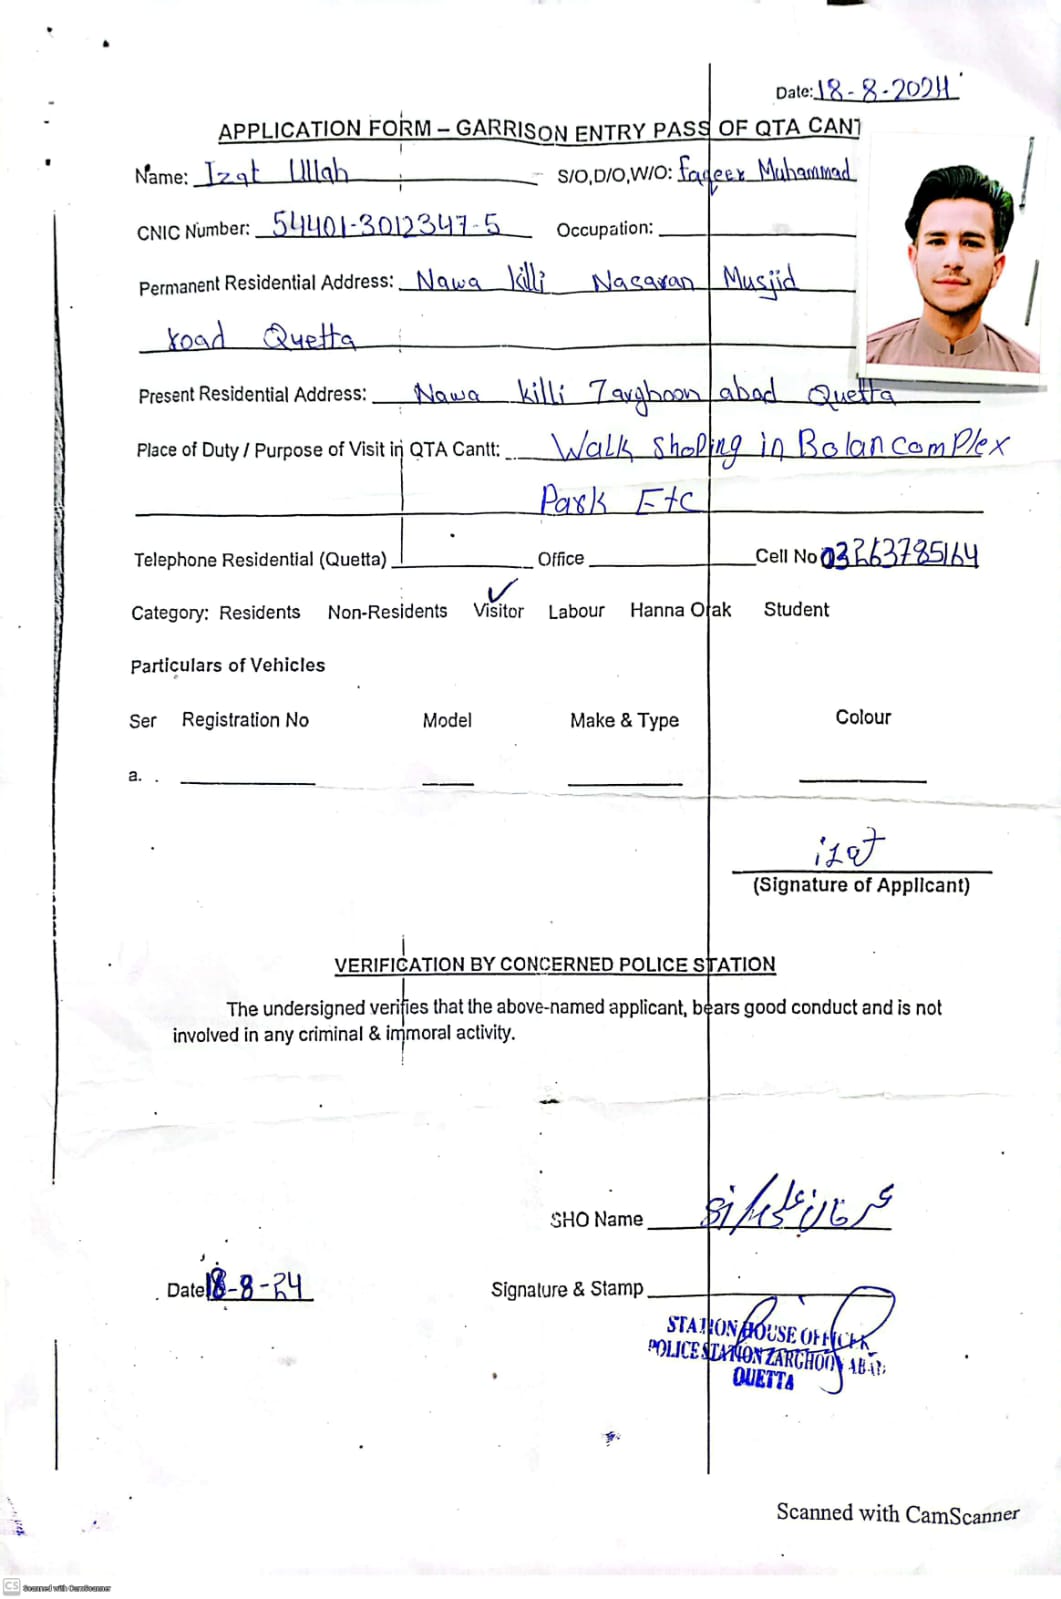 Date: 18-8-2024
APPLICATION FORM – GARRISON ENTRY PASS OF QTA CANT
Name: Izat Ullah S/O,D/O,W/O: faqeer Muhammad
CNIC Number: 54401-3012347-5 Occupation:
Permanent Residential Address: Nawa killi Nasaran Musjid
road Quetta
Present Residential Address: Nawa killi Zarghoon abad Quetta
Place of Duty / Purpose of Visit in QTA Cantt: Walk Shoping in Bolan comPlex
Park Etc
Telephone Residential (Quetta) Office Cell No 03263785164
Category: Residents Non-Residents Visitor Labour Hanna Orak Student
Particulars of Vehicles
Ser Registration No Model Make & Type Colour
a.
izat
(Signature of Applicant)
VERIFICATION BY CONCERNED POLICE STATION
The undersigned verifies that the above-named applicant, bears good conduct and is not
involved in any criminal & immoral activity.
SHO Name
Date 18-8-24 Signature & Stamp
STATION HOUSE OFFICER
POLICE STATION ZARGHOON ABAD
QUETTA
Scanned with CamScanner
CS Scanned with CamScanner